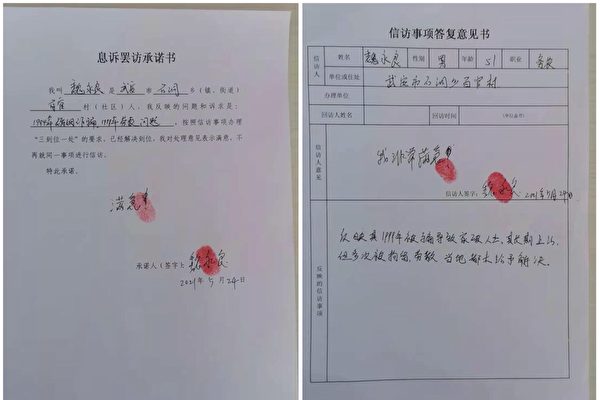 息诉罢访承诺书
我叫 魏永良 是 武安 市 石洞 乡(镇、街道)
百官 村(社区)人，我反映的问题和诉求是：
1999年 问题，按照信访事项办理
“三到位一处”的要求，已经解决到位，我对处理意见表示满意，不
再就同一事项进行信访。
特此承诺。
满意！
承诺人（签字）：魏永良
2021年5月24日
信访事项答复意见书
信访人 姓名 魏永良 性别 男 年龄 51 职业 务农
单位或住处 武安市石洞乡百官村
办理单位
回访人姓名 回访时间 (单位盖章)
信访人意见
我非常满意！
信访人签字：魏永良 2021年5月24日
反映的信访事项
反映其1999年被 导致家破人亡，其长期上访，
但多次被拘留、劳教，当地都未给予解决。